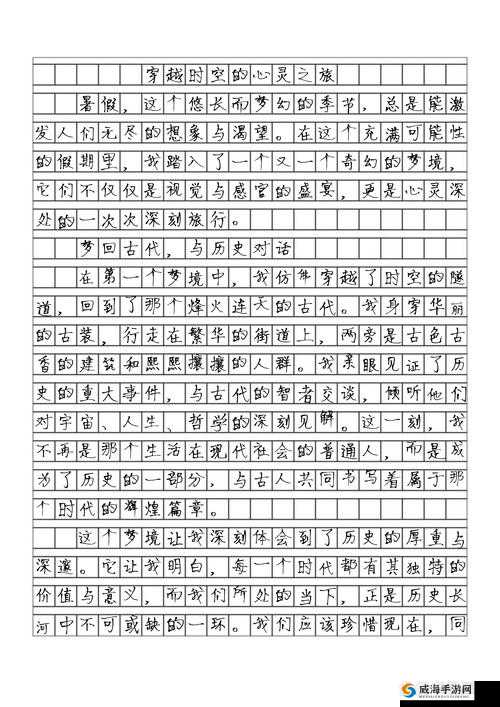 穿越时空的心灵之旅
暑假，这个悠长而梦幻的季节，总是能激
发人们无尽的想象与渴望。在这个充满可能性
的假期里，我踏入了一个又一个奇幻的梦境，
它们不仅仅是视觉与感官的盛宴，更是心灵深
处的一次次深刻旅行。
梦回古代，与历史对话
在第一个梦境中，我仿佛穿越了时空的隧
道，回到了那个烽火连天的古代。我身穿华丽
的古装，行走在繁华的街道上，两旁是古色古
香的建筑和熙熙攘攘的人群。我亲眼见证了历
史的重大事件，与古代的智者交谈，倾听他们
对宇宙、人生、哲学的深刻见解。这一刻，我
不再是那个生活在现代社会的普通人，而是成
为了历史的一部分，与古人共同书写着属于那
个时代的辉煌篇章。
这个梦境让我深刻体会到了历史的厚重与
深邃。它让我明白，每一个时代都有其独特的
价值与意义，而我们所处的当下，正是历史长
河中不可或缺的一环。我们应该珍惜现在，同
威海手游网